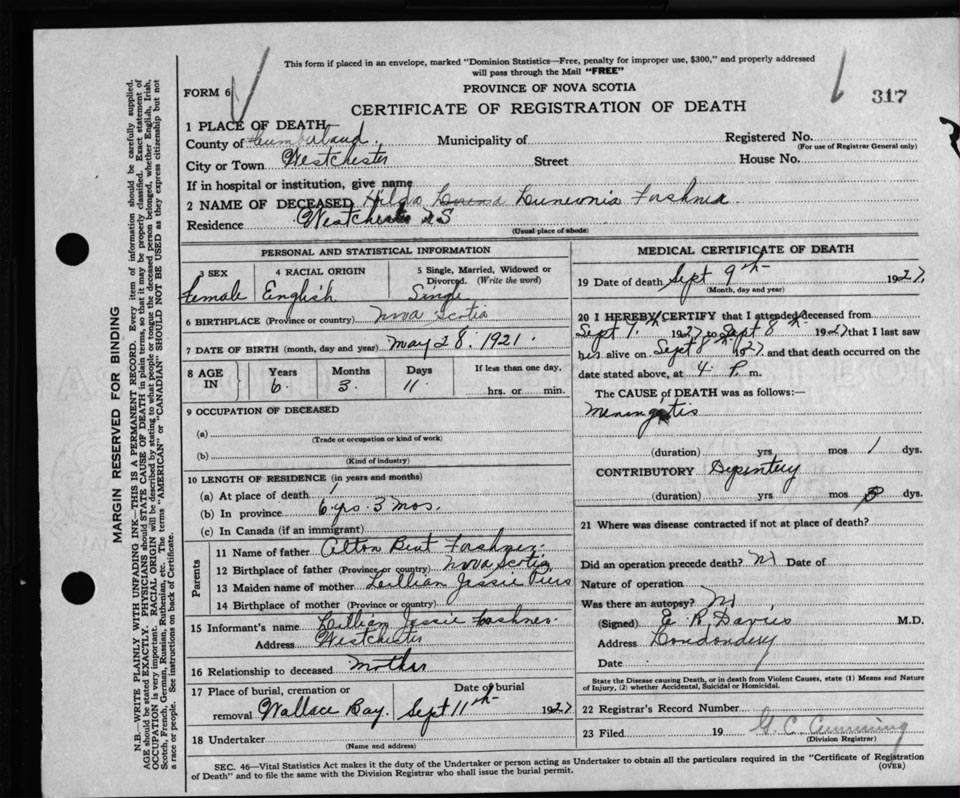 This form if placed in an envelope, marked "Dominion Statistics—Free, penalty for improper use, $300," and properly addressed
will pass through the Mail "FREE"
FORM 6
PROVINCE OF NOVA SCOTIA
317
CERTIFICATE OF REGISTRATION OF DEATH
1 PLACE OF DEATH
County of Cumberland Municipality of Registered No.
(For use of Registrar General only)
City or Town Westchester Street House No.
If in hospital or institution, give name
2 NAME OF DECEASED Hilda
Residence Westchester
(Usual place of abode)
PERSONAL AND STATISTICAL INFORMATION
3 SEX 4 RACIAL ORIGIN 5 Single, Married, Widowed or
Divorced. (Write the word)
Female English Single
6 BIRTHPLACE (Province or country) Nova Scotia
7 DATE OF BIRTH (month, day and year) May 28. 1921.
8 AGE IN Years Months Days If less than one day,
6 3 11 hrs. or min.
9 OCCUPATION OF DECEASED
(a)
(Trade or occupation or kind of work)
(b)
(Kind of industry)
10 LENGTH OF RESIDENCE (in years and months)
(a) At place of death
(b) In province 6 yrs. 3 mos.
(c) In Canada (if an immigrant)
Parents
11 Name of father Alton
12 Birthplace of father (Province or country) Nova Scotia
13 Maiden name of mother Lillian Jessie
14 Birthplace of mother (Province or country)
15 Informant's name Lillian Jessie
Address Westchester
16 Relationship to deceased Mother
17 Place of burial, cremation or Date of burial
removal Wallace Bay. Sept 11th 1927
18 Undertaker
(Name and address)
MEDICAL CERTIFICATE OF DEATH
19 Date of death Sept 9th 1927
(Month, day and year)
20 I HEREBY CERTIFY that I attended deceased from
Sept 7th 1927 to Sept 8th 1927 that I last saw
her alive on Sept 8th 1927 and that death occurred on
date stated above, at 4 P. m.
The CAUSE of DEATH was as follows:—
Meningitis
(duration) yrs mos 1 dys.
CONTRIBUTORY Dysentery
(duration) yrs mos dys.
21 Where was disease contracted if not at place of death?
Did an operation precede death? Date of
Nature of operation
Was there an autopsy?
(Signed) E. R. Davies M.D.
Address Londonderry
Date
State the Disease causing Death, or in death from Violent Causes, state (1) Means and Nature
of Injury, (2) whether Accidental, Suicidal or Homicidal.
22 Registrar's Record Number
23 Filed 19 G. C. Cumming
(Division Registrar)
SEC. 46—Vital Statistics Act makes it the duty of the Undertaker or person acting as Undertaker to obtain all the particulars required in the "Certificate of Registration
of Death" and to file the same with the Division Registrar who shall issue the burial permit. (OVER)
MARGIN RESERVED FOR BINDING
N.B.—WRITE PLAINLY WITH UNFADING INK—THIS IS A PERMANENT RECORD. Every item of information should be carefully supplied.
AGE should be stated EXACTLY. PHYSICIANS should STATE CAUSE OF DEATH in plain terms, so that it may be properly classified. Exact statement of
OCCUPATION is very important. RACIAL ORIGIN will be described by stating to what people or tongue the deceased person belonged, whether English, Irish,
Scotch, French, German, Russian, Ruthenian, etc. The terms "AMERICAN" or "CANADIAN" SHOULD NOT BE USED as they express citizenship but not
a race or people. See instructions on back of Certificate.